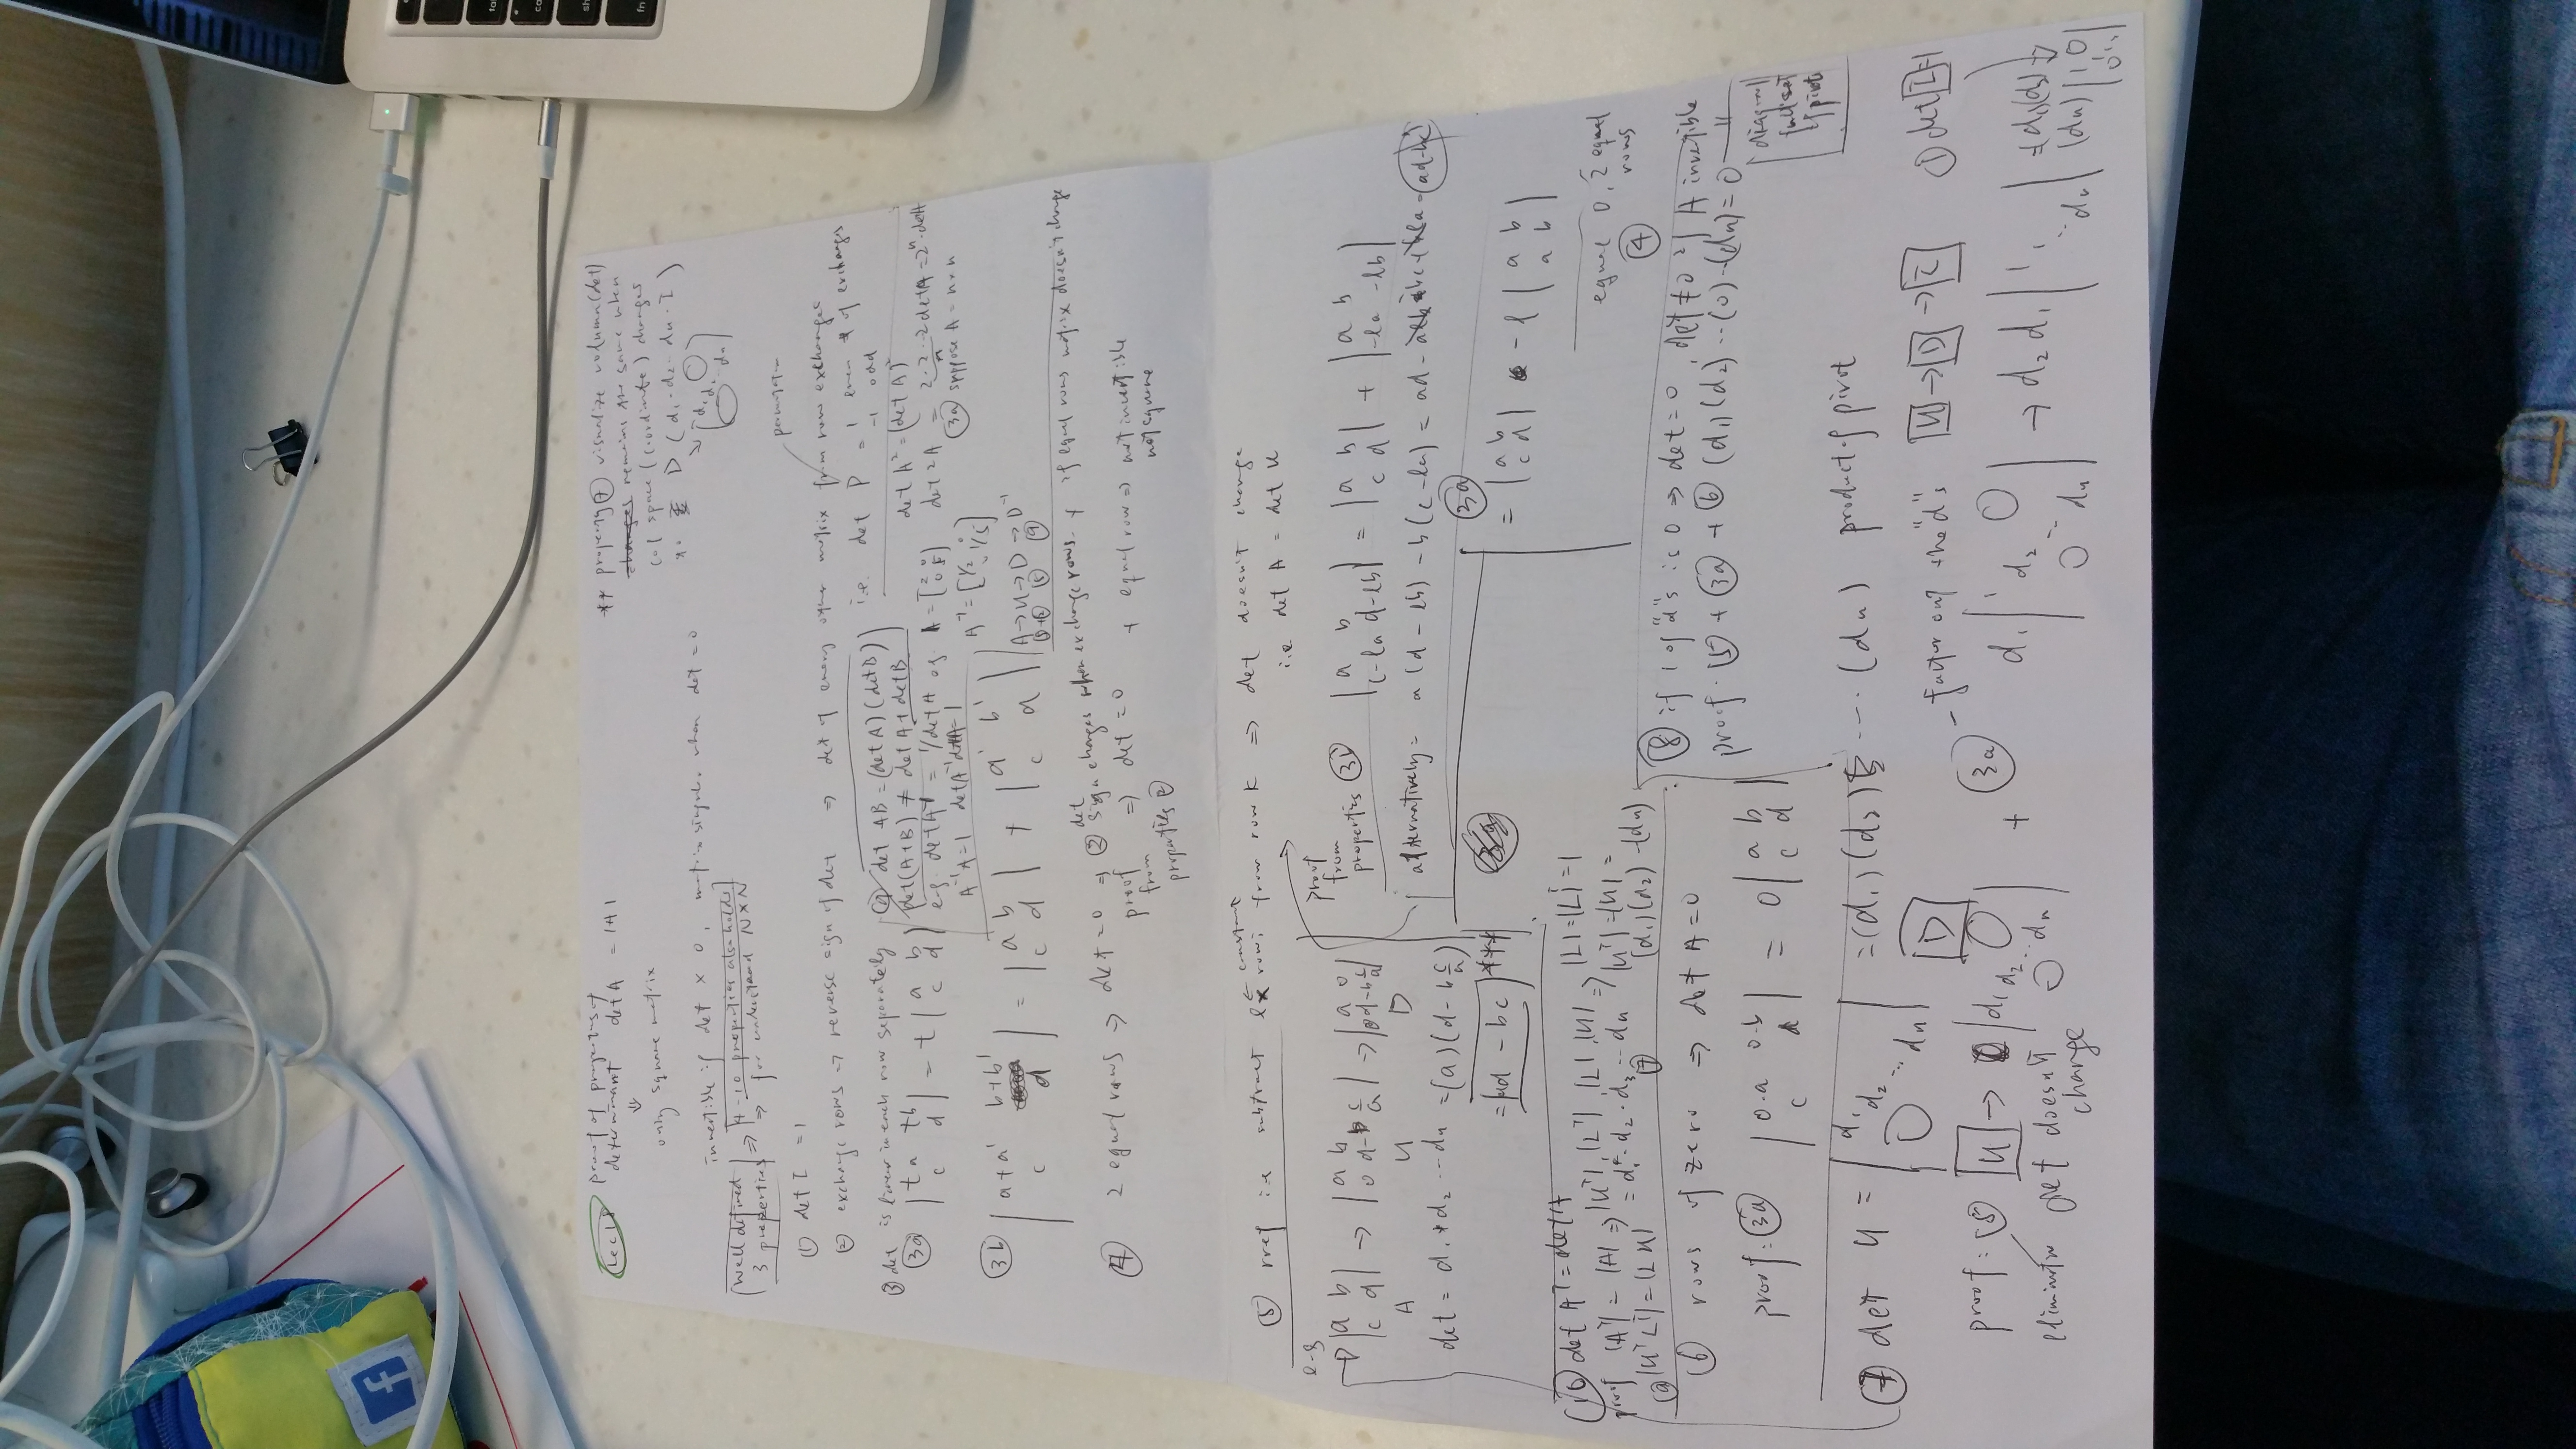 f
Lec 18
proof of properties of
determinant det A = |A|
⇓
only square matrix
** property ⑦ visualize volume (det)
remains the same when
col space (coordinate) changes
D (d₁·d₂ ·· dn · I)
invertible if det × 0, matrix singular when det = 0
well defined
3 properties
⇒ 4-10 properties also holds
⇒ for understand N×N
① det I = 1
② exchange rows → reverse sign of det ⇒ det of every other matrix from row exchanges
permutation
i.e. det P = 1 even # of exchanges
-1 odd
③ det is linear in each row separately
③a |ta tb; c d| = t |a b; c d|
⑨ det AB = (det A)(det B)
det(A+B) ≠ det A + det B
e.g. det A⁻¹ = 1/det A e.g. A = [2 0; 0 5]
A⁻¹A = 1 det A⁻¹ det A = 1
A⁻¹ = [1/2 0; 0 1/5]
det A² = (det A)²
det 2A = 2·2··2 det A = 2ⁿ·det A
③a suppose A = n×n
③b |a+a' b+b'; c d| = |a b; c d| + |a' b'; c d|
A → U → D → D⁻¹
④ 2 equal rows ⇒ det = 0 ⇒ ② det sign changes when exchange rows + if equal rows matrix doesn't change
proof from properties ②
⇒ det = 0 + equal row ⇒ not invertible
not square
⑤ rref i.e. subtract l× row i from row k ⇒ det doesn't change
constant
i.e. det A = det U
e.g
|a b; c d| → |a b; 0 d-b c/a| → |a 0; 0 d-b c/a|
A U D
det = d₁ * d₂ ··· dn = (a)(d - b c/a)
= ad - bc ***
proof from properties ③b
|a b; c-la d-lb| = |a b; c d| + |a b; -la -lb|
alternatively = a(d-lb) - b(c-la) = ad - alb - bc + bla = ad-bc
③a
= |a b; c d| - l |a b; a b|
equal 0, 2 equal
rows
④
⑩ det Aᵀ = det A
proof |Aᵀ| = |A| ⇒ |Uᵀ|, |Lᵀ|, |L|, |U| ⇒ |L| = |Lᵀ| = 1
⑨ |UᵀLᵀ| = |LU| = d₁·d₂·d₃ ··· dn
⑦
|Uᵀ| = |U| =
(d₁)(d₂) ··(dn)
⑥ rows of zero ⇒ det A = 0
proof: ③a |0·a 0·b; c d| = 0 |a b; c d|
⑧ if 1 of "d"s is 0 ⇒ det = 0, det ≠ 0 if A invertible
proof: ⑤ + ③a + ⑥ (d₁)(d₂) ··(0)··(dn) = 0
diagonal
full set
of pivot
⑦ det U = |d₁ d₂ ·· dn 0| = (d₁)(d₂) ···· (dn) product of pivot
D
- factor out the "d"s U → D → I ① det I = 1
proof: ⑤ U → |d₁ d₂ ·· dn 0| + ③a d₁ |1 d₂ ·· dn 0| → d₂ d₁ |1 1 ·· dn| = (d₁)(d₂)
(dn) |1 0; 0 1 ··|
elimination det doesn't
change